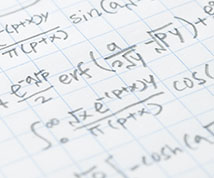 e^-(p+x)y / π(p+x) sin(a√x
+ e^-a√p / 2 erf(a / 2√y - √py) +
∫₀^∞ √x e^-(p+x)y / π(p+x) cos(
-cosh(a√